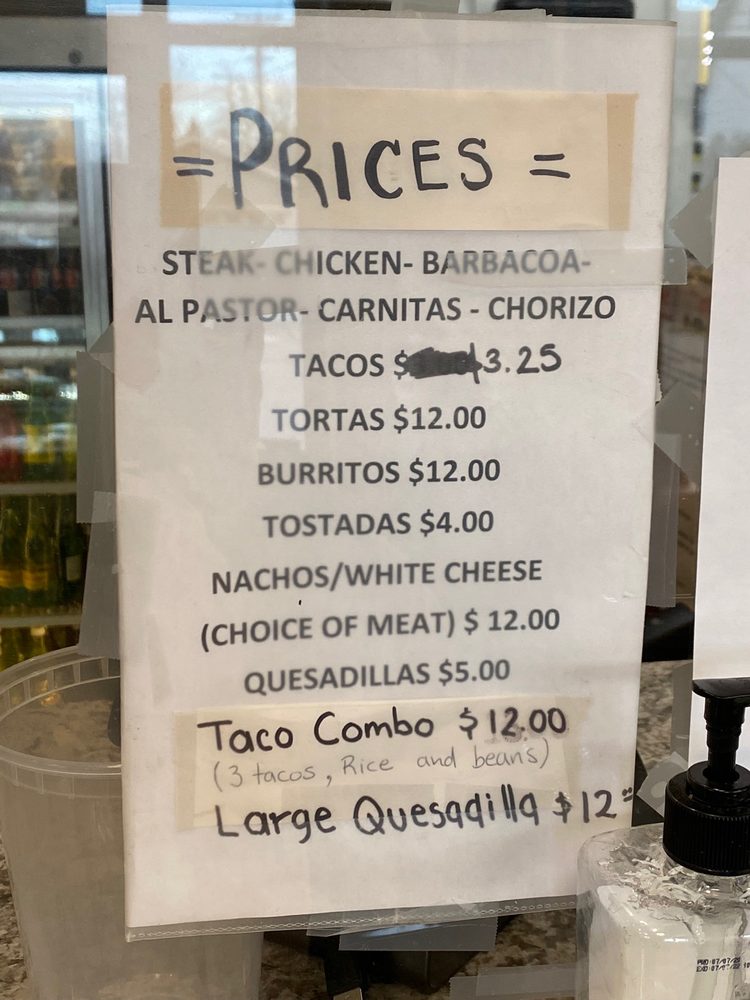 =PRICES=
STEAK- CHICKEN- BARBACOA-
AL PASTOR- CARNITAS - CHORIZO
TACOS $3.25
TORTAS $12.00
BURRITOS $12.00
TOSTADAS $4.00
NACHOS/WHITE CHEESE
(CHOICE OF MEAT) $ 12.00
QUESADILLAS $5.00
Taco Combo $12.00
(3 tacos, Rice and beans)
Large Quesadilla $12